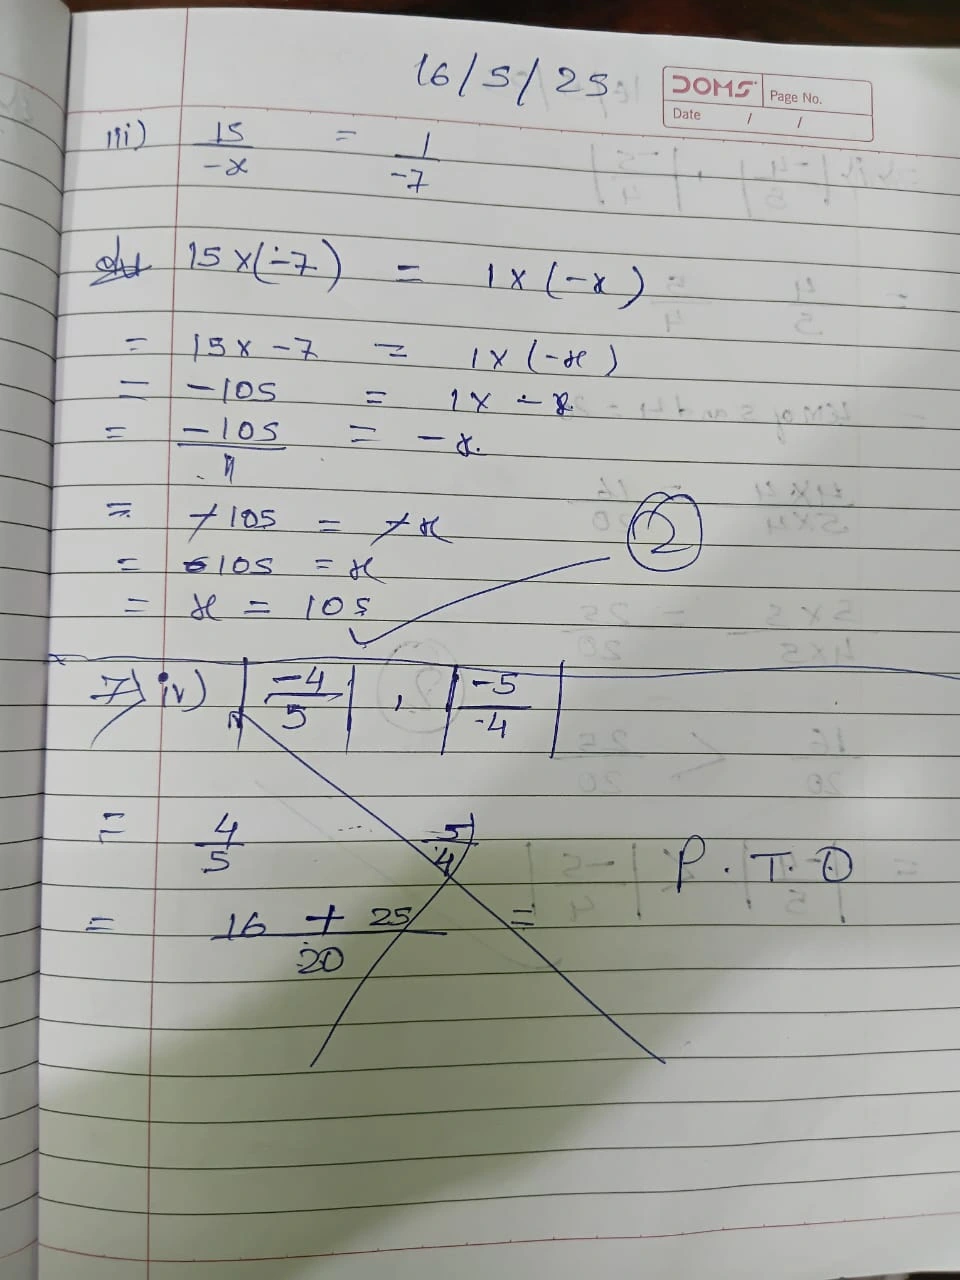 16/5/25
DOMS Page No.
Date / /
iii) 15/-x = 1/-7
15 x (-7) = 1 x (-x)
= 15 x -7 = 1 x (-x)
= -105 = 1 x -x
= -105/1 = -x.
= -105 = -x
= 105 = x
= x = 105
2
7) iv) |-4/5| , |-5/-4|
= 4/5 5/4
= 16 + 25/20 =
P.T.O